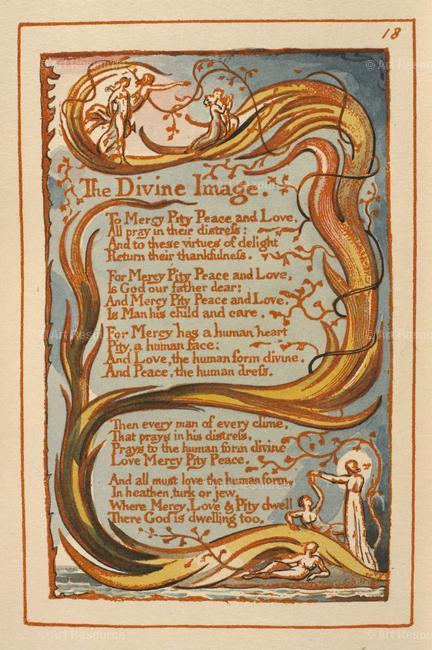 18
The Divine Image.
To Mercy Pity Peace and Love,
All pray in their distress:
And to these virtues of delight
Return their thankfulness.
For Mercy Pity Peace and Love,
Is God our father dear:
And Mercy Pity Peace and Love,
Is Man his child and care.
For Mercy has a human heart
Pity, a human face:
And Love, the human form divine,
And Peace, the human dress.
Then every man of every clime,
That prays in his distress,
Prays to the human form divine
Love Mercy Pity Peace.
And all must love the human form,
In heathen, turk or jew.
Where Mercy, Love & Pity dwell
There God is dwelling too.
© Art Resource
© Art Resource
© Art Resource
© Art Resource
© Art Resource
© Art Resource